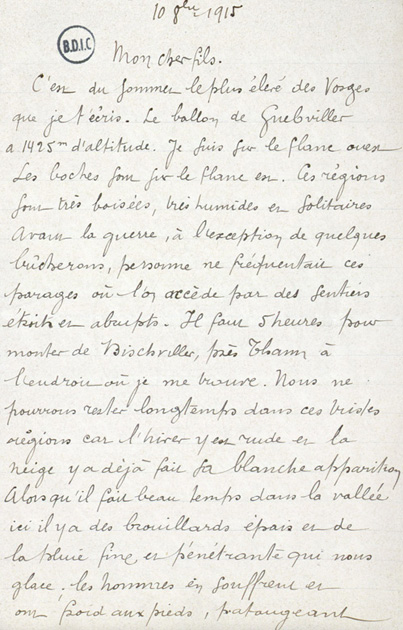 10 8bre 1915
B.D.I.C
Mon cher fils.
C'est du sommet le plus élevé des Vosges
que je t'écris. Le ballon de Guebviller
a 1425m d'altitude. Je suis sur le flanc ouest
Les boches sont sur le flanc est. Ces régions
sont très boisées, très humides et solitaires
Avant la guerre, à l'exception de quelques
bûcherons, personne ne fréquentait ces
parages où l'on accède par des sentiers
étroits et abrupts. Il faut 5 heures pour
monter de Bischviller, près Thann à
l'endroit où je me trouve. Nous ne
pourrons rester longtemps dans ces tristes
régions car l'hiver y est rude et la
neige y a déjà fait sa blanche apparition
Alors qu'il fait beau temps dans la vallée
ici il y a des brouillards épais et de
la pluie fine et pénétrante qui nous
glace. les hommes en souffrent et
ont froid aux pieds, pataugeant